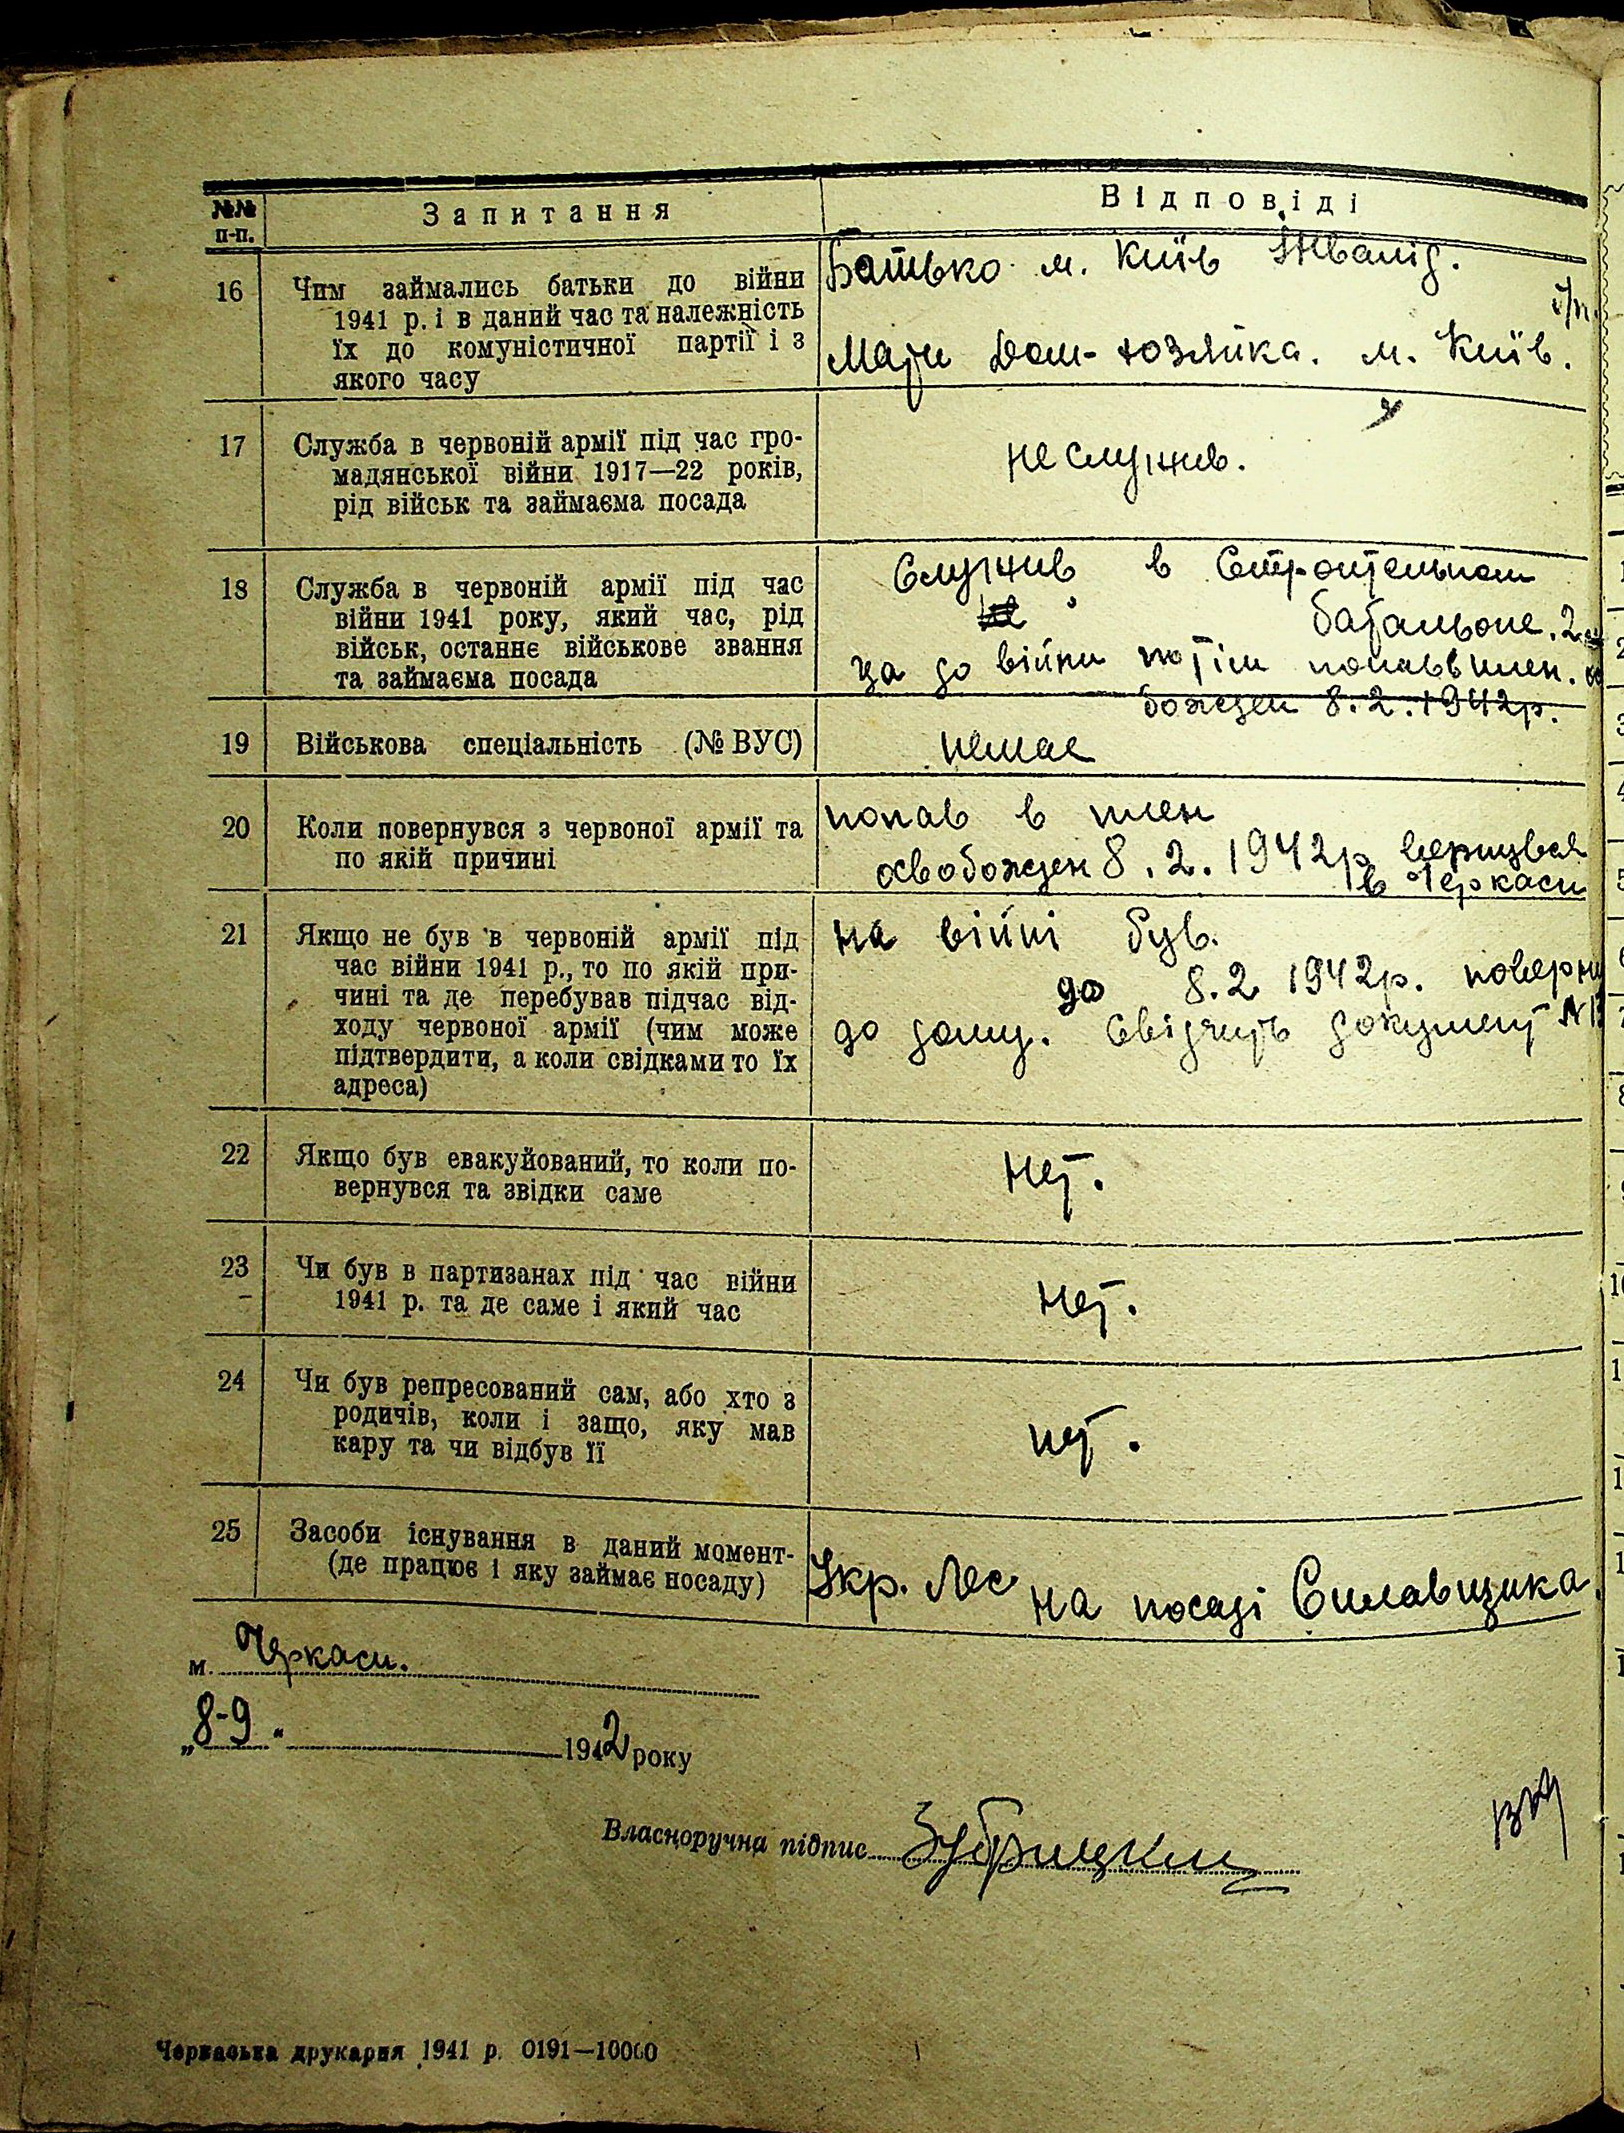 №№ п-п.
Запитання
Відповіді
16
Чим займались батьки до війни
1941 р. і в даний час та належність
їх до комуністичної партії і з
якого часу
Батько м. Київ Інвалід.
Мати Дом-хозяйка. м. Київ.
17
Служба в червоній армії під час гро-
мадянської війни 1917—22 років,
рід військ та займаєма посада
не служив.
18
Служба в червоній армії під час
війни 1941 року, який час, рід
військ, останнє військове звання
та займаєма посада
Служив в Строительном
батальоне. 2
ца до війни потім попав в плен.
божден 8.2.1942р.
19
Військова спеціальність (№ ВУС)
немає
20
Коли повернувся з червоної армії та
по якій причині
попав в плен
освобожден 8.2.1942р вернувся
в Черкаси
21
Якщо не був в червоній армії під
час війни 1941 р., то по якій при-
чині та де перебував підчас від-
ходу червоної армії (чим може
підтвердити, а коли свідками то їх
адреса)
на війні був.
до 8.2 1942р. поверну
до дому. Свідчить документ №
22
Якщо був евакуйований, то коли по-
вернувся та звідки саме
нет.
23
Чи був в партизанах під час війни
1941 р. та де саме і який час
нет.
24
Чи був репресований сам, або хто з
родичів, коли і защо, яку мав
кару та чи відбув її
нет.
25
Засоби існування в даний момент-
(де працює і яку займає посаду)
Укр. Лес на посаді Сплавщика.
м. Черкаси.
„8-9“ 1942 року
Власноручна підпис Зубрицкий
Черкаська друкарня 1941 р. 0191—10000